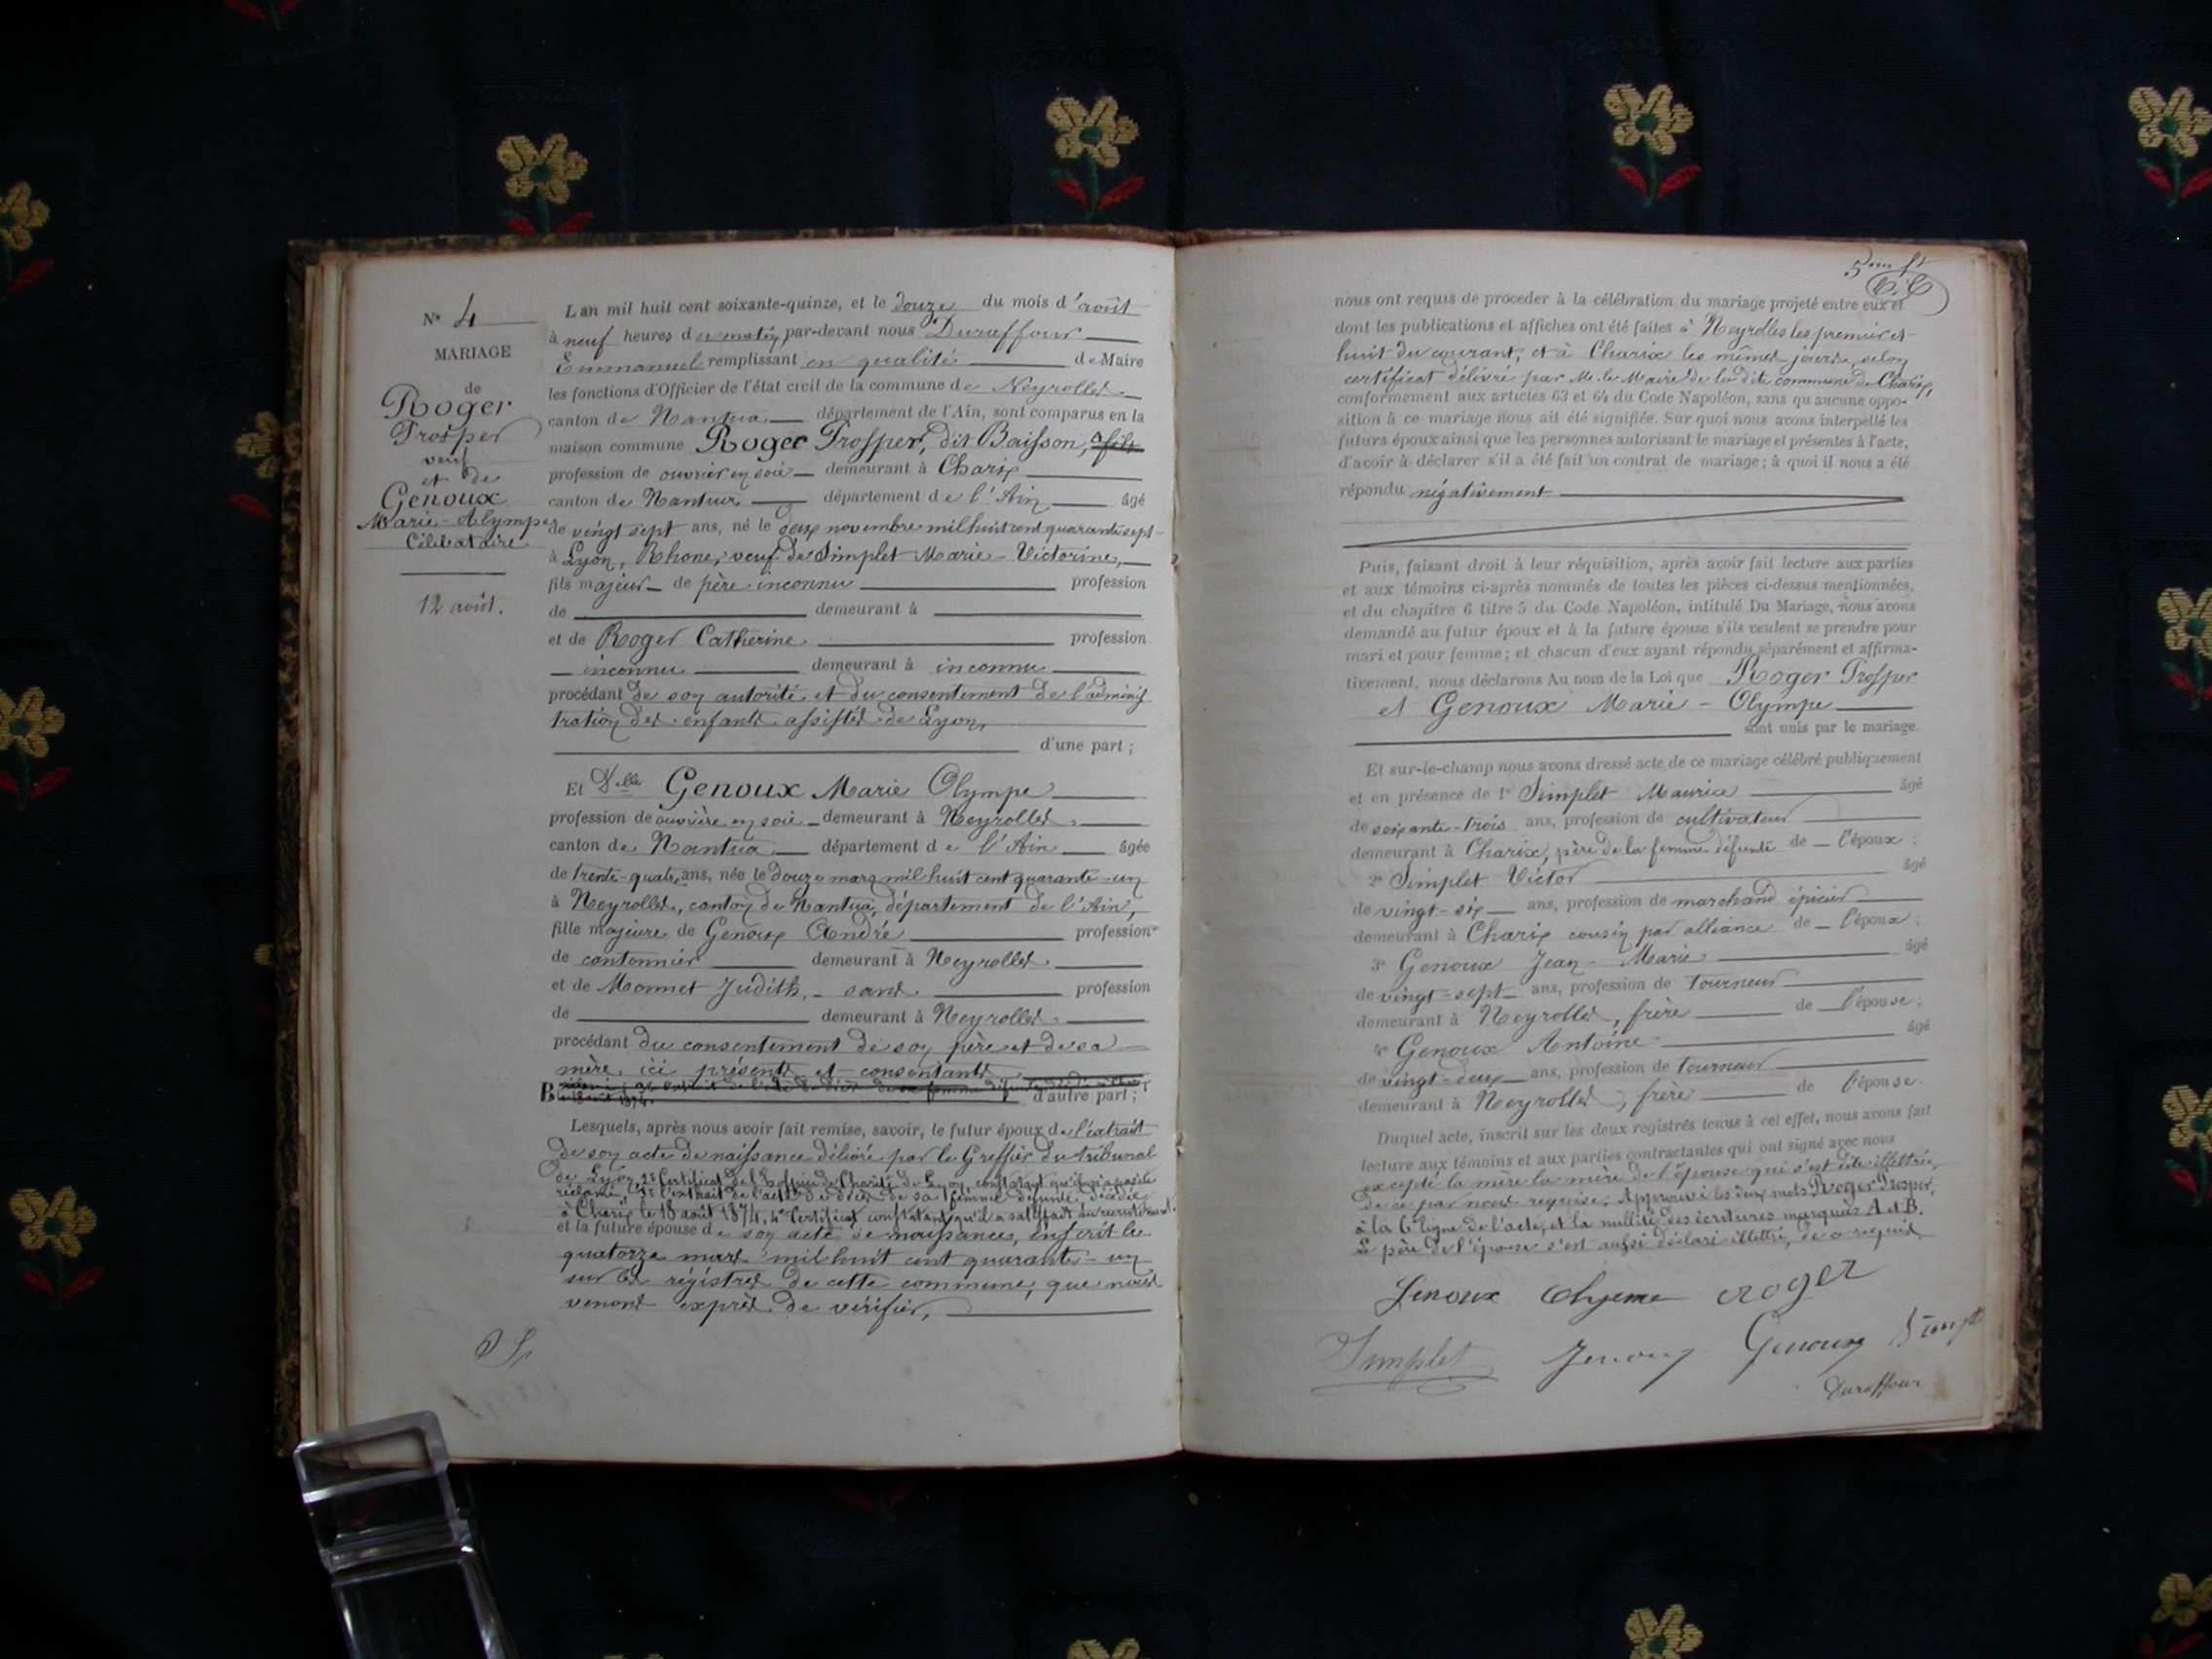 N° 4
MARIAGE
de
Roger
Prosper
veuf
et de
Genoux
Marie-Olympe
Célibataire
12 août.
L'an mil huit cent soixante-quinze, et le douze du mois d'août
à neuf heures du matin, par-devant nous Duraffour
Emmanuel remplissant en qualité de Maire
les fonctions d'Officier de l'état civil de la commune de Neyrolles
canton de Nantua département de l'Ain, sont comparus en la
maison commune Roger Prosper, dit Baisson, A fils
profession de ouvrier en soie demeurant à Charix
canton de Nantua département de l'Ain âgé
de vingt sept ans, né le deux novembre mil huit cent quarante sept
à Lyon, Rhone, veuf de Simplet Marie-Victorine,
fils majeur de père inconnu profession
de demeurant à
et de Roger Catherine profession
inconnue demeurant à inconnu
procédant de son autorité et du consentement de l'adminis
tration des enfants assistés de Lyon,
d'une part ;
Et Dlle Genoux Marie Olympe
profession de ouvrière en soie demeurant à Neyrolles
canton de Nantua département de l'Ain âgée
de trente-quatre ans, née le douze mars mil huit cent quarante-un
à Neyrolles, canton de Nantua, département de l'Ain,
fille majeure de Genoux André profession
de cantonnier demeurant à Neyrolles
et de Monnet Judith, sans profession
de demeurant à Neyrolles
procédant du consentement de son père et de sa
mère ici présents et consentants
B d'autre part ;
Lesquels, après nous avoir fait remise, savoir, le futur époux de l'extrait
de son acte de naissance délivré par le Greffier du tribunal
de Lyon, 2° Certificat de l'hospice de Charité de Lyon, constatant qu'il n'a pas été
réclamé, 3° l'extrait de l'acte de décès de sa femme défunte, décédée
à Charix le 18 août 1874, 4° Certificat constatant qu'il a satisfait au recrutement.
et la future épouse de son acte de naissance, inscrit le
quatorze mars mil huit cent quarante-un
sur les régistres de cette commune, que nous
venons exprès de vérifier,
5me ft
nous ont requis de procéder à la célébration du mariage projeté entre eux et
dont les publications et affiches ont été faites à Neyrolles les premier et
huit du courant, et à Charix les mêmes jours, selon
certificat délivré par Mr le Maire de la dite commune de Charix,
conformément aux articles 63 et 64 du Code Napoléon, sans qu'aucune oppo-
sition à ce mariage nous ait été signifiée. Sur quoi nous avons interpellé les
futurs époux ainsi que les personnes autorisant le mariage et présentes à l'acte,
d'avoir à déclarer s'il a été fait un contrat de mariage ; à quoi il nous a été
répondu négativement
Puis, faisant droit à leur réquisition, après avoir fait lecture aux parties
et aux témoins ci-après nommés de toutes les pièces ci-dessus mentionnées,
et du chapitre 6 titre 5 du Code Napoléon, intitulé Du Mariage, nous avons
demandé au futur époux et à la future épouse s'ils veulent se prendre pour
mari et pour femme ; et chacun d'eux ayant répondu séparément et affirma-
tivement, nous déclarons Au nom de la Loi que Roger Prosper
et Genoux Marie-Olympe
sont unis par le mariage.
Et sur-le-champ nous avons dressé acte de ce mariage célébré publiquement
et en présence de 1° Simplet Maurice âgé
de soixante-trois ans, profession de cultivateur
demeurant à Charix, père de la femme défunte de l'époux ;
2° Simplet Victor âgé
de vingt-six ans, profession de marchand épicier
demeurant à Charix cousin par alliance de l'époux ;
3° Genoux Jean-Marie âgé
de vingt-sept ans, profession de tourneur
demeurant à Neyrolles, frère de l'épouse ;
4° Genoux Antoine âgé
de vingt-deux ans, profession de tourneur
demeurant à Neyrolles, frère de l'épouse.
Duquel acte, inscrit sur les deux registrés tenus à cet effet, nous avons fait
lecture aux témoins et aux parties contractantes qui ont signé avec nous
excepté la mère la mère de l'épouse qui s'est dite illettrée,
de ce par nous requise. Approuvé les deux mots Roger Prosper,
à la 6e ligne de l'acte, et la nullité des écritures marqués A et B.
Le père de l'épouse s'est aussi déclaré illettré, de ce requis
Genoux Olympe Roger
Simplet Genoux Genoux
Duraffour